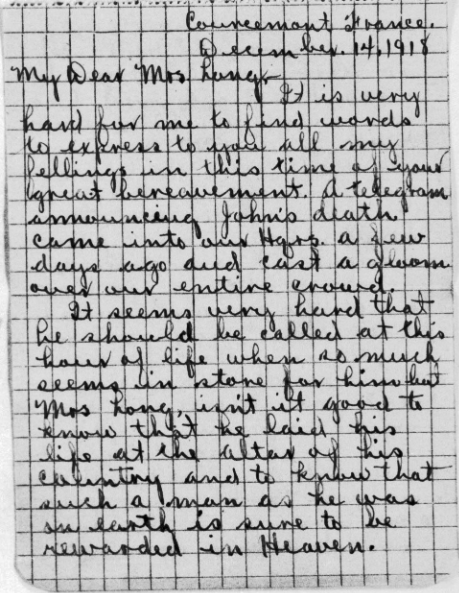 Courcemont France.
December. 14, 1918
My Dear Mrs. Long,-
It is very
hard for me to find words
to express to you all my
fellings in this time of your
great bereavement. A telegram
announcing John's death
came into our Hqrs. a few
days ago and cast a gloom
over our entire crowd.
It seems very hard that
he should be called at this
hour of life when so much
seems in store for him but
Mrs Long, isn't it good to
know that he laid his
life at the altar of his
country and to know that
such a man as he was
on earth is sure to be
rewarded in Heaven.